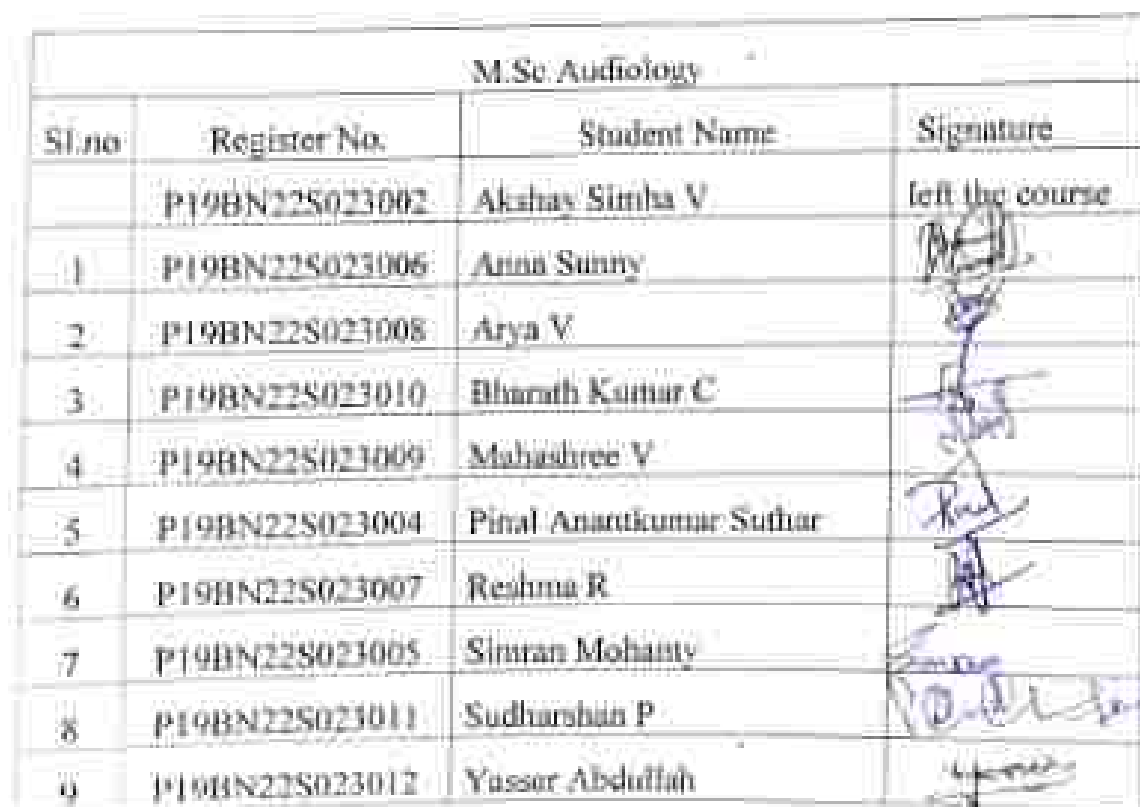 M.Sc Audiology
Sl.no Register No. Student Name Signature
P19BN22S023002 Akshay Simha V left the course
1 P19BN22S023006 Anna Sunny
2 P19BN22S023008 Arya V
3 P19BN22S023010 Bharath Kumar C
4 P19BN22S023009 Mahashree V
5 P19BN22S023004 Pinal Anantkumar Suthar
6 P19BN22S023007 Reshma R
7 P19BN22S023005 Simran Mohanty
8 P19BN22S023011 Sudharshan P
9 P19BN22S023012 Yasser Abdullah